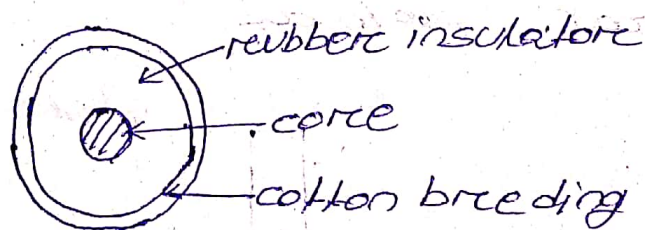 reubberc insulatorc
corce
cotton breeding